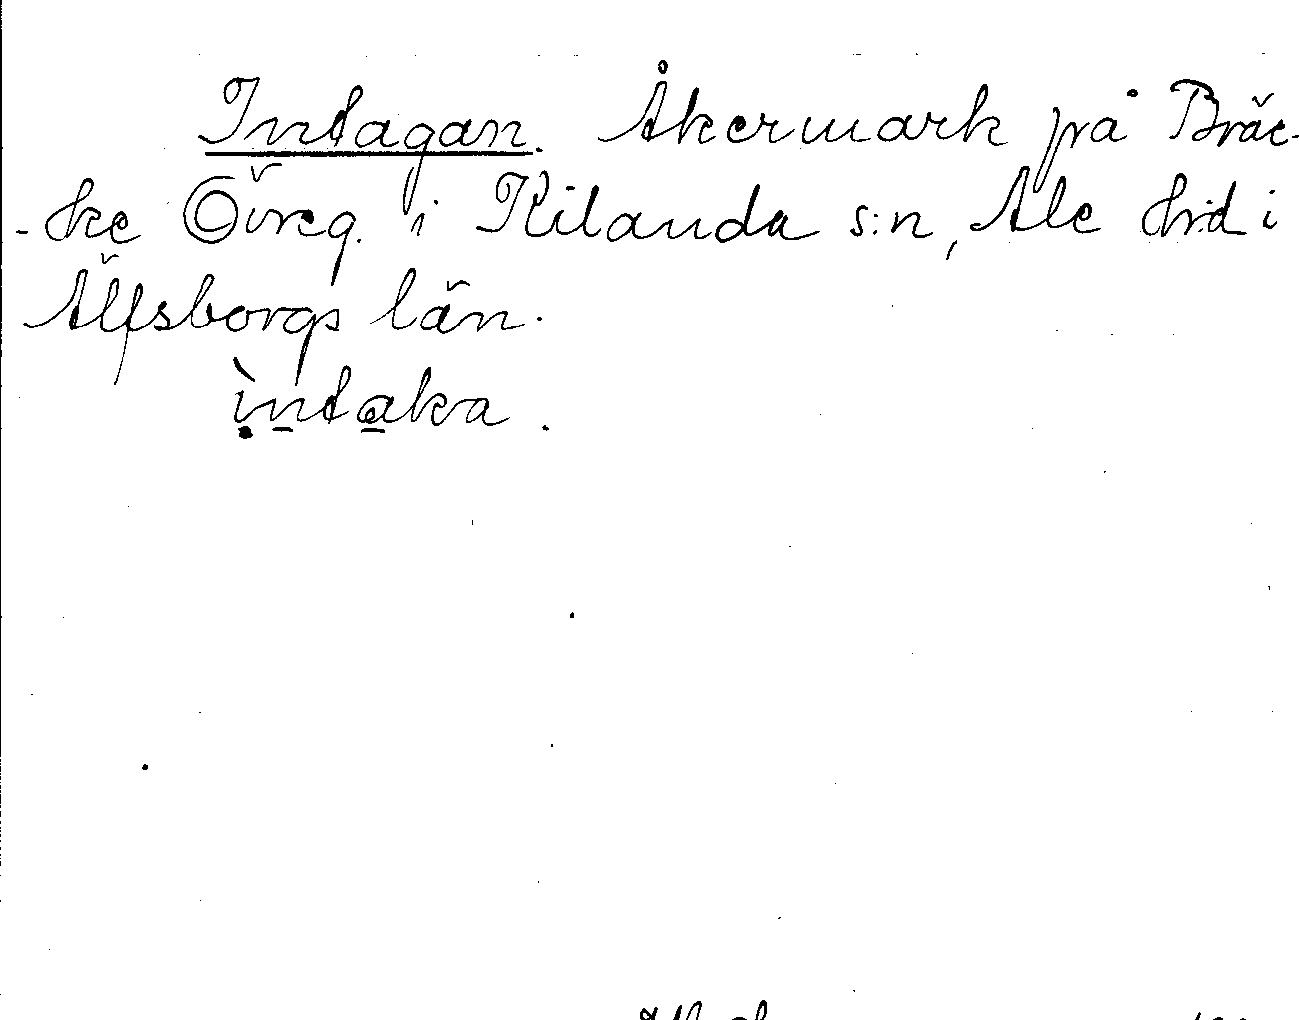 Intagan. Åkermark på Bräc-
-ke Övreg. i Kilanda s:n, Ale hd i
Älfsborgs län.
ìntaka.